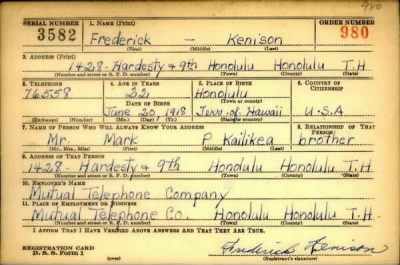 980
SERIAL NUMBER 1. NAME (Print) ORDER NUMBER
3582 Frederick — Kenison 980
(First) (Middle) (Last)
2. ADDRESS (Print)
1428 - Hardesty & 9th Honolulu Honolulu T.H
(Number and street or R. F. D. number) (Town) (County) (State)
3. TELEPHONE 4. AGE IN YEARS 5. PLACE OF BIRTH 6. COUNTRY OF CITIZENSHIP
76558 22 Honolulu
DATE OF BIRTH (Town or county)
June 20, 1918 Terr. of Hawaii U.S.A
(Exchange) (Number) (Mo.) (Day) (Yr.) (State or country)
7. NAME OF PERSON WHO WILL ALWAYS KNOW YOUR ADDRESS 8. RELATIONSHIP OF THAT PERSON
Mr. Mark P Kailikea brother
(Mr., Mrs., Miss) (First) (Middle) (Last)
9. ADDRESS OF THAT PERSON
1428 Hardesty & 9th Honolulu Honolulu T.H
(Number and street or R. F. D. number) (Town) (County) (State)
10. EMPLOYER'S NAME
Mutual Telephone Company
11. PLACE OF EMPLOYMENT OR BUSINESS
Mutual Telephone Co. Honolulu Honolulu T.H.
(Number and street or R. F. D. number) (Town) (County) (State)
I AFFIRM THAT I HAVE VERIFIED ABOVE ANSWERS AND THAT THEY ARE TRUE.
REGISTRATION CARD
D. S. S. Form 1
Frederick Kenison
(Registrant's signature)